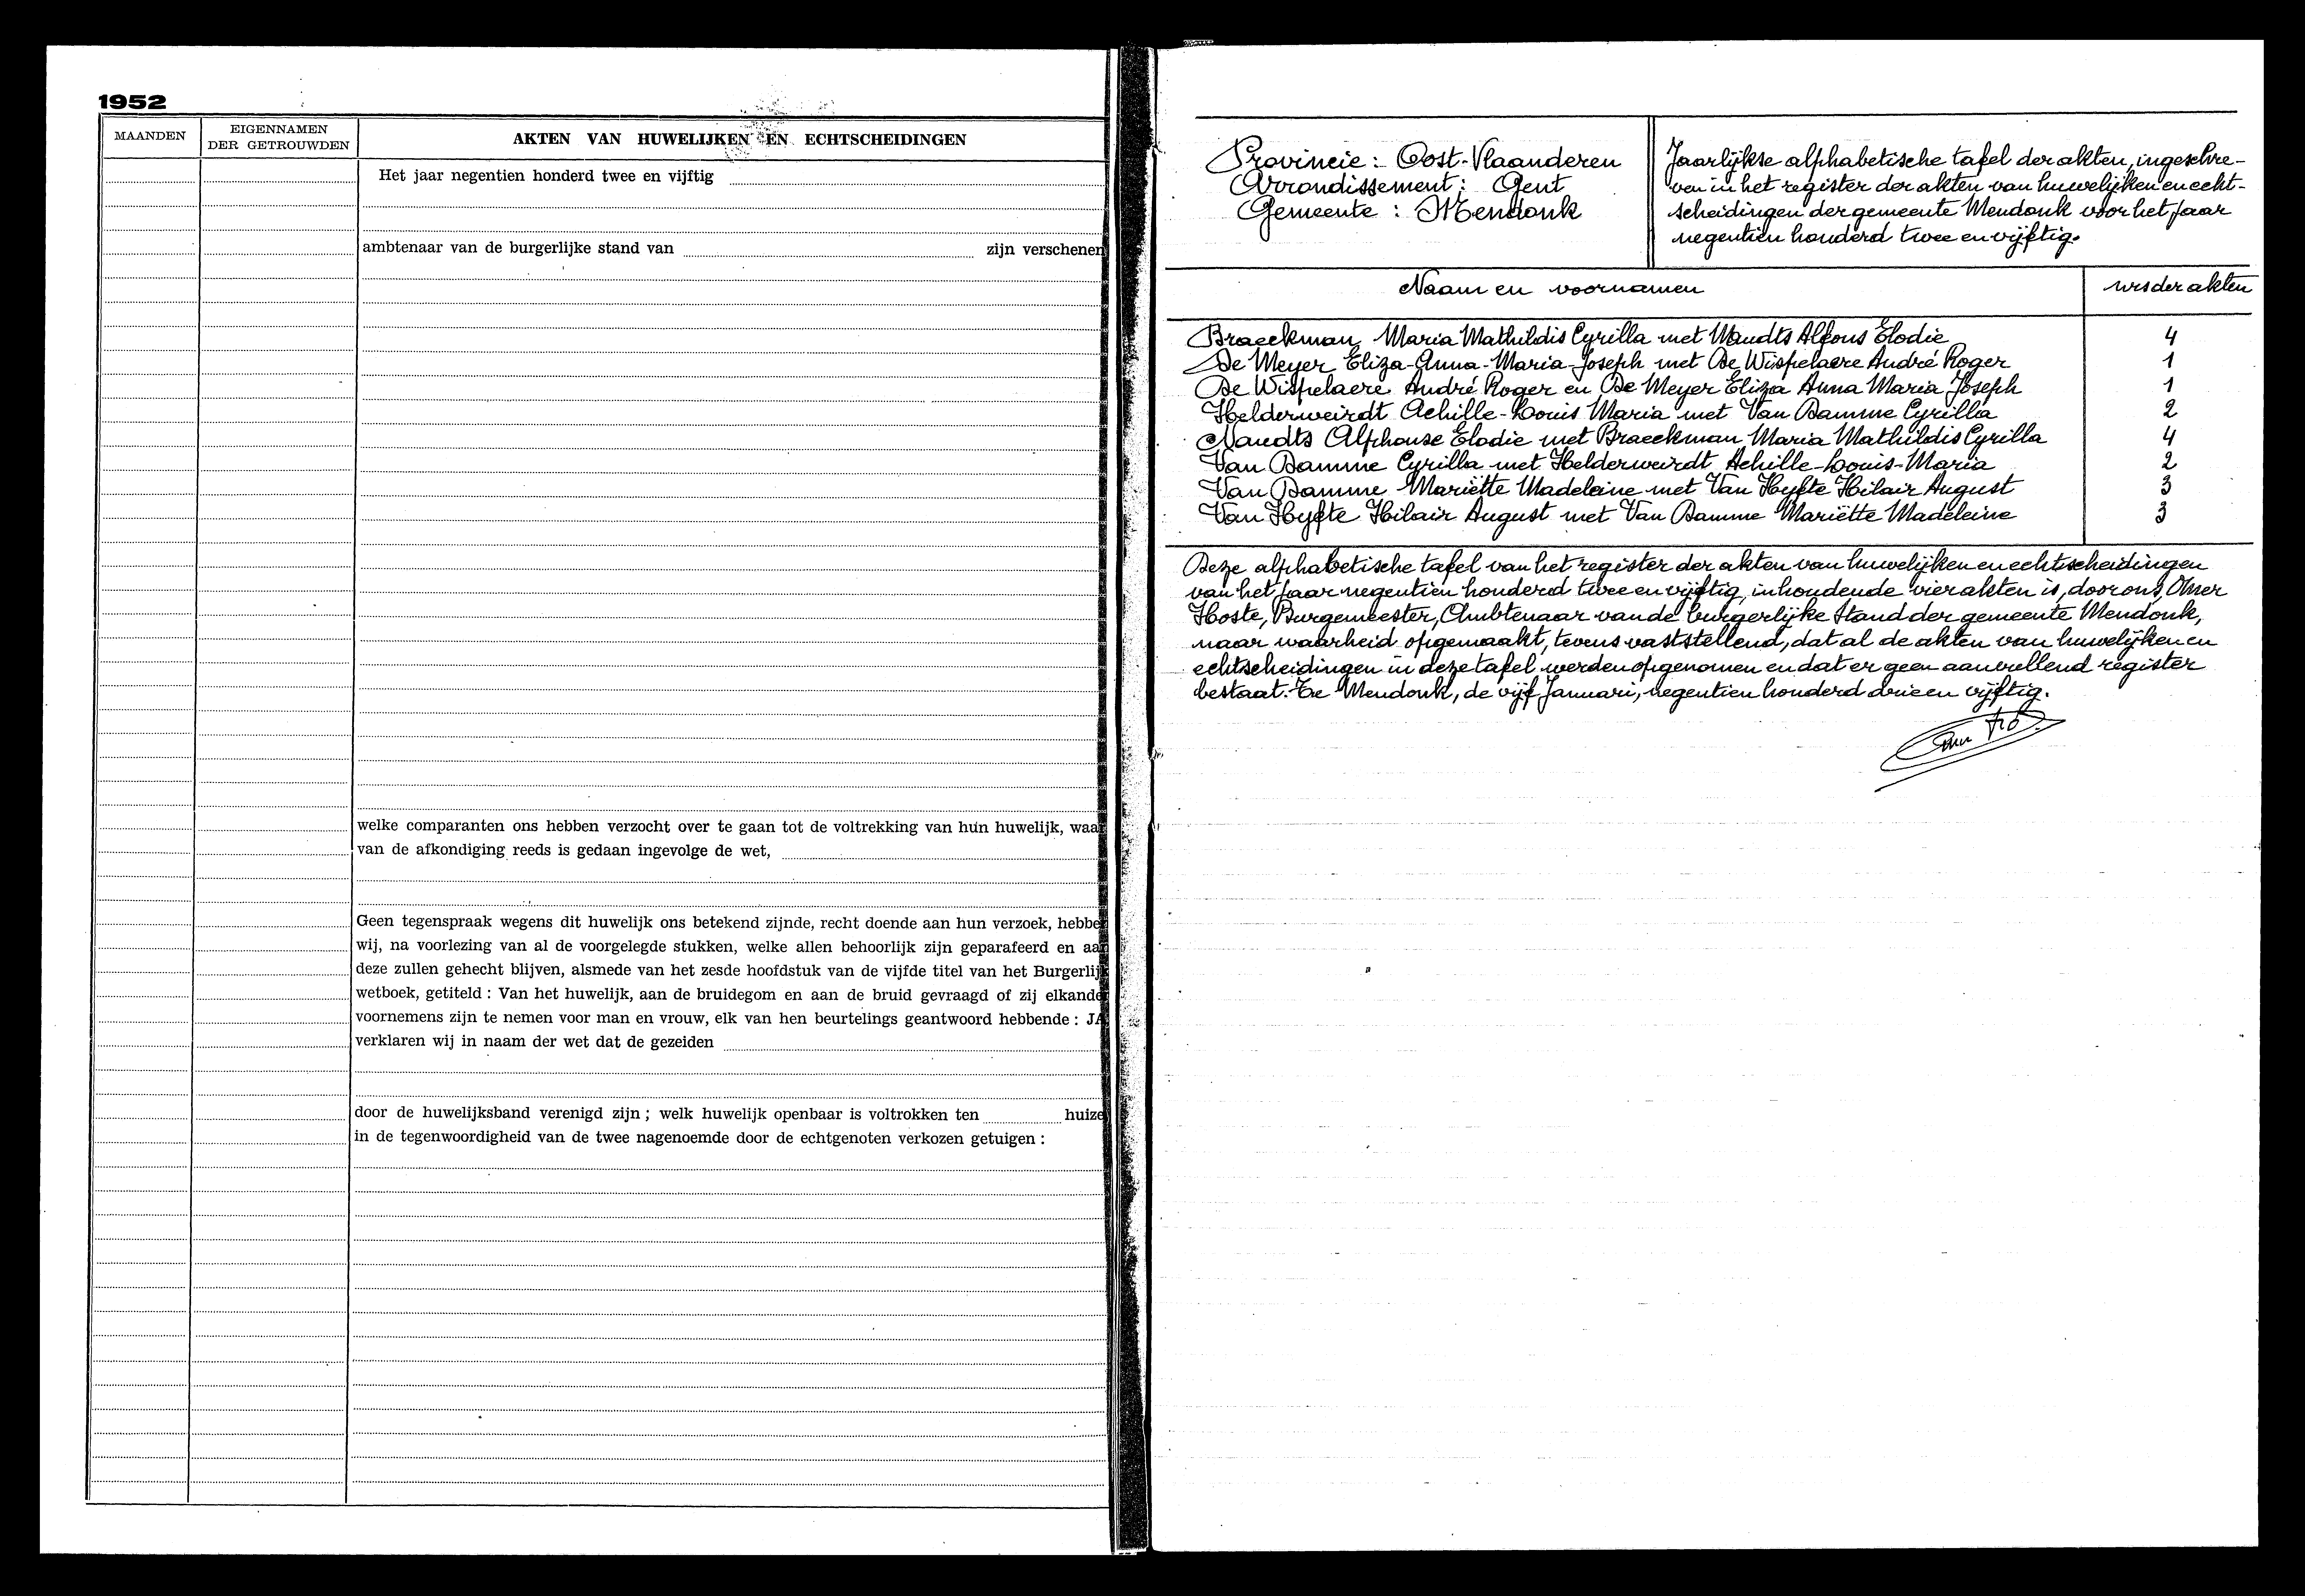 1952
MAANDEN
EIGENNAMEN
DER GETROUWDEN
AKTEN VAN HUWELIJKEN EN ECHTSCHEIDINGEN
Het jaar negentien honderd twee en vijftig
ambtenaar van de burgerlijke stand van zijn verschenen
welke comparanten ons hebben verzocht over te gaan tot de voltrekking van hun huwelijk, waar
van de afkondiging reeds is gedaan ingevolge de wet,
Geen tegenspraak wegens dit huwelijk ons betekend zijnde, recht doende aan hun verzoek, hebben
wij, na voorlezing van al de voorgelegde stukken, welke allen behoorlijk zijn geparafeerd en aan
deze zullen gehecht blijven, alsmede van het zesde hoofdstuk van de vijfde titel van het Burgerlijk
wetboek, getiteld : Van het huwelijk, aan de bruidegom en aan de bruid gevraagd of zij elkander
voornemens zijn te nemen voor man en vrouw, elk van hen beurtelings geantwoord hebbende : JA
verklaren wij in naam der wet dat de gezeiden
door de huwelijksband verenigd zijn ; welk huwelijk openbaar is voltrokken ten huize
in de tegenwoordigheid van de twee nagenoemde door de echtgenoten verkozen getuigen :
Provincie : Oost-Vlaanderen
Arrondissement : Gent
Gemeente : Mendonk
Jaarlijkse alphabetische tafel der akten, ingeschre-
ven in het register der akten van huwelijken en echt-
scheidingen der gemeente Mendonk voor het jaar
negentien honderd twee en vijftig.
Naam en voornamen nrs der akten
Braeckman Maria Mathildis Cyrilla met Naudts Alfons Elodie 4
De Meyer Eliza-Anna-Maria-Joseph met De Wispelaere André Roger 1
De Wispelaere André Roger en De Meyer Eliza Anna Maria Joseph 1
Helderweirdt Achille-Louis Maria met Van Damme Cyrilla 2
Naudts Alphonse Elodie met Braeckman Maria Mathildis Cyrilla 4
Van Damme Cyrilla met Helderweirdt Achille-Louis-Maria 2
Van Damme Mariëtte Madeleine met Van Hyfte Hilair August 3
Van Hyfte Hilair August met Van Damme Mariëtte Madeleine 3
Deze alphabetische tafel van het register der akten van huwelijken en echtscheidingen
van het jaar negentien honderd twee en vijftig, inhoudende vier akten is, door ons, Omer
Hoste, Burgemeester, Ambtenaar van de burgerlijke stand der gemeente Mendonk,
naar waarheid opgemaakt, tevens vaststellend, dat al de akten van huwelijken en
echtscheidingen in deze tafel werden opgenomen en dat er geen aanvullend register
bestaat. Te Mendonk, de vijf Januari, negentien honderd drie en vijftig.